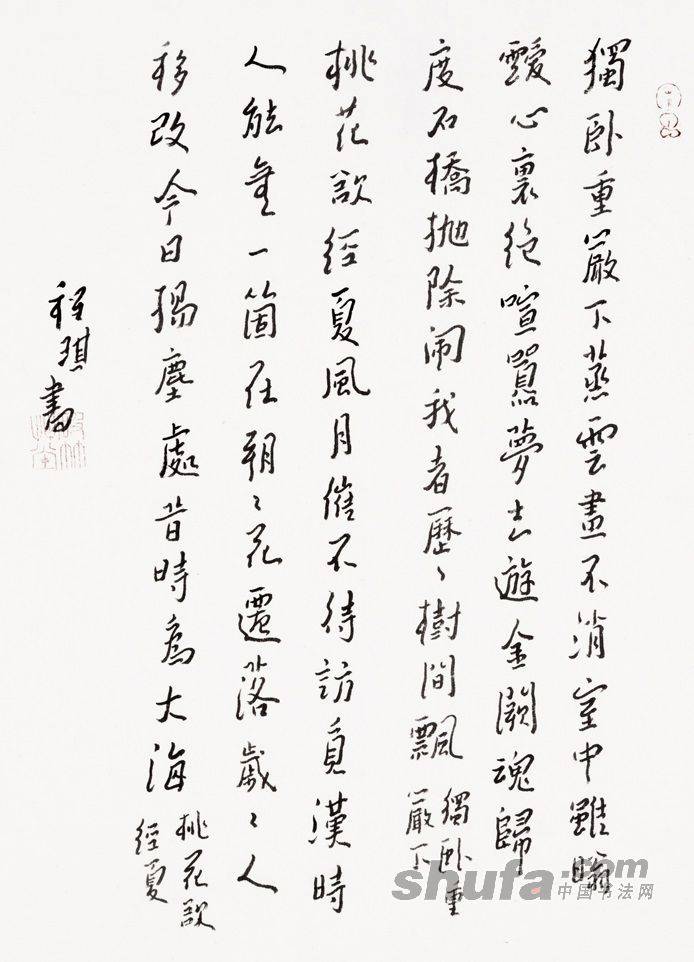 獨卧重巖下蒸雲晝不消室中雖暡
靉心裏絕喧囂夢去遊金闕魂歸
度石橋拋除鬧我者歷〻樹間飄
獨卧重
巖下
桃花欲經夏風月催不待訪覓漢時
人能無一箇在朝〻花遷落歲〻人
移改今日揚塵處昔時為大海
桃花欲
經夏
程琪書
shufa.com
中国书法网